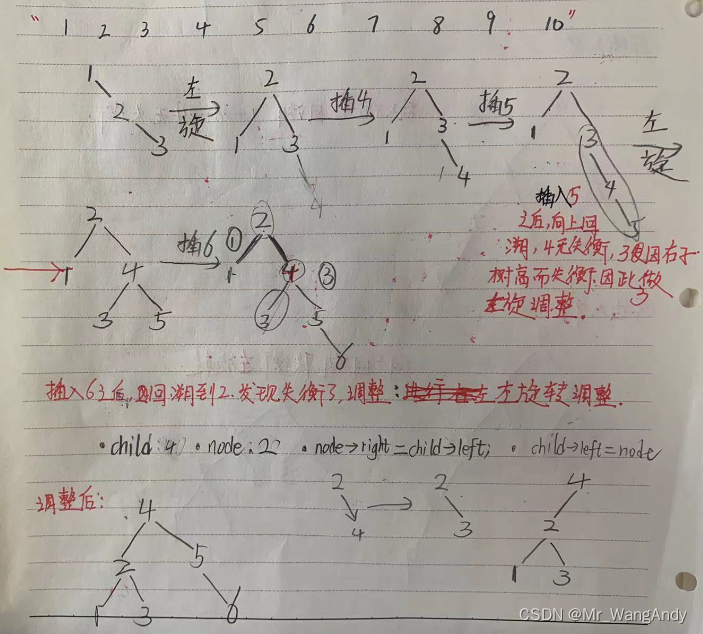 “ 1 2 3 4 5 6 7 8 9 10 ”
1 2 3
左旋
2 1 3 4
插4
2 1 3 4
插5
2 1 3 4 5
左旋
插入5
之后,向上回
溯,4无失衡,3因右子
树高而失衡.因此做
左旋调整. 3
2 1 4 3 5
插6
① 2 1 4 ③ 3 5 6
插入6之后,回溯到2.发现失衡了,调整:左旋转调整.
·child:4 ·node:2 ·node→right=child→left; ·child→left=node
调整后:
4 2 5 1 3 6
2 4
2 3
4 2 1 3
CSDN @Mr_WangAndy